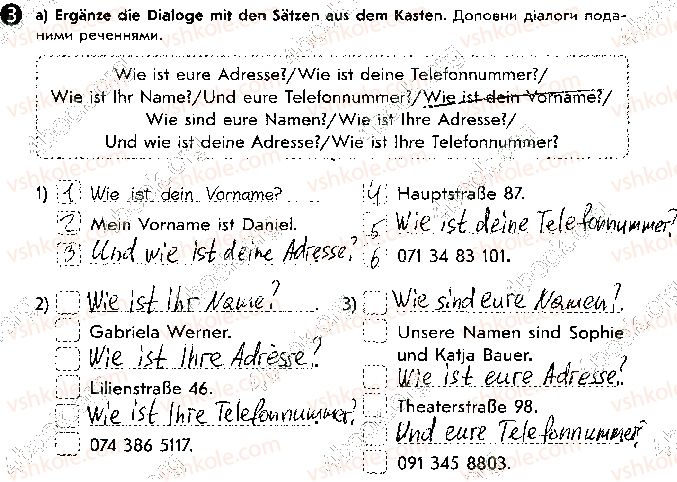 3 a) Ergänze die Dialoge mit den Sätzen aus dem Kasten. Доповни діалоги пода-
ними реченнями.
Wie ist eure Adresse?/Wie ist deine Telefonnummer?/
Wie ist Ihr Name?/Und eure Telefonnummer?/Wie ist dein Vorname?/
Wie sind eure Namen?/Wie ist Ihre Adresse?/
Und wie ist deine Adresse?/Wie ist Ihre Telefonnummer?
1) 1 Wie ist dein Vorname?
2 Mein Vorname ist Daniel.
3 Und wie ist deine Adresse?
4 Hauptstraße 87.
5 Wie ist deine Telefonnummer?
6 071 34 83 101.
2) Wie ist Ihr Name?
Gabriela Werner.
Wie ist Ihre Adresse?
Lilienstraße 46.
Wie ist Ihre Telefonnummer?
074 386 5117.
3) Wie sind eure Namen?
Unsere Namen sind Sophie
und Katja Bauer.
Wie ist eure Adresse?
Theaterstraße 98.
Und eure Telefonnummer?
091 345 8803.